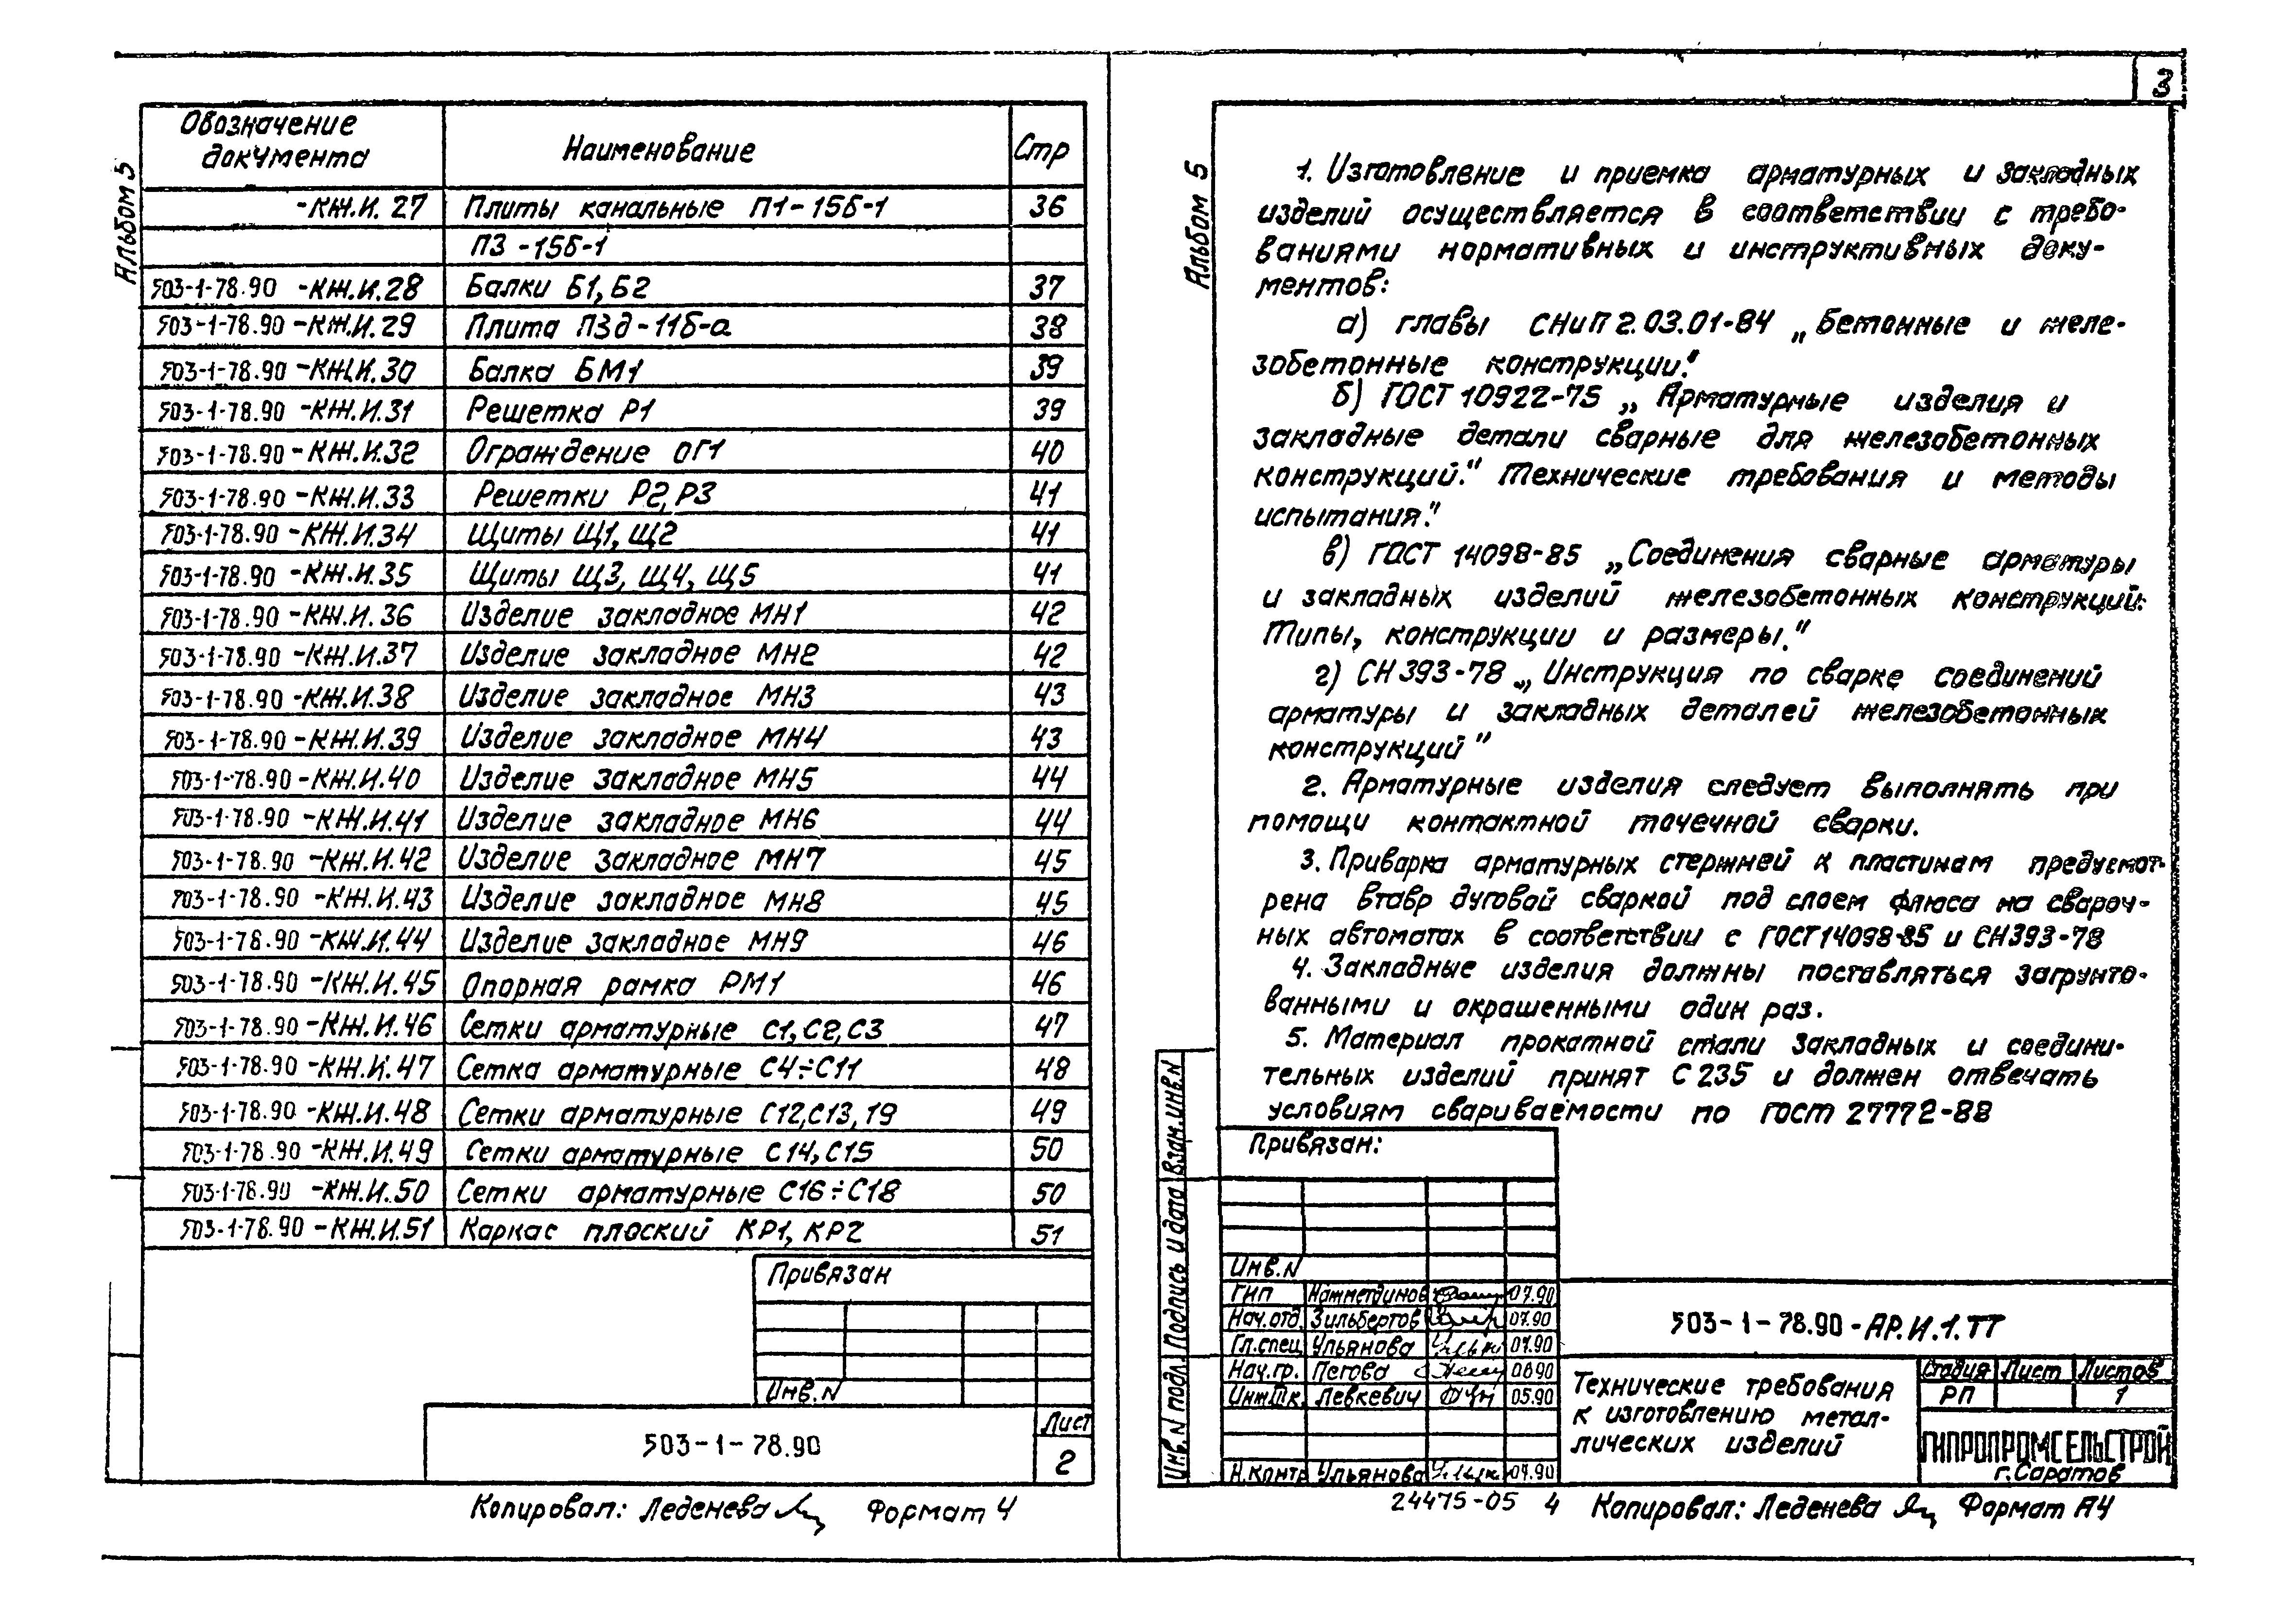 3
Альбом 5
Обозначение документа | Наименование | Стр
-КЖ.И.27 | Плиты канальные П1-15Б-1 | 36
П3-15Б-1
503-1-78.90 -КЖ.И.28 | Балки Б1, Б2 | 37
503-1-78.90 -КЖ.И.29 | Плита П3д-11Б-а | 38
503-1-78.90 -КЖ.И.30 | Балка БМ1 | 39
503-1-78.90 -КЖ.И.31 | Решетка Р1 | 39
503-1-78.90 -КЖ.И.32 | Ограждение ОГ1 | 40
503-1-78.90 -КЖ.И.33 | Решетки Р2, Р3 | 41
503-1-78.90 -КЖ.И.34 | Щиты Щ1, Щ2 | 41
503-1-78.90 -КЖ.И.35 | Щиты Щ3, Щ4, Щ5 | 41
503-1-78.90 -КЖ.И.36 | Изделие закладное МН1 | 42
503-1-78.90 -КЖ.И.37 | Изделие закладное МН2 | 42
503-1-78.90 -КЖ.И.38 | Изделие закладное МН3 | 43
503-1-78.90 -КЖ.И.39 | Изделие закладное МН4 | 43
503-1-78.90 -КЖ.И.40 | Изделие закладное МН5 | 44
503-1-78.90 -КЖ.И.41 | Изделие закладное МН6 | 44
503-1-78.90 -КЖ.И.42 | Изделие закладное МН7 | 45
503-1-78.90 -КЖ.И.43 | Изделие закладное МН8 | 45
503-1-78.90 -КЖ.И.44 | Изделие закладное МН9 | 46
503-1-78.90 -КЖ.И.45 | Опорная рамка РМ1 | 46
503-1-78.90 -КЖ.И.46 | Сетки арматурные С1, С2, С3 | 47
503-1-78.90 -КЖ.И.47 | Сетка арматурные С4÷С11 | 48
503-1-78.90 -КЖ.И.48 | Сетки арматурные С12, С13, 19 | 49
503-1-78.90 -КЖ.И.49 | Сетки арматурные С14, С15 | 50
503-1-78.90 -КЖ.И.50 | Сетки арматурные С16÷С18 | 50
503-1-78.90 -КЖ.И.51 | Каркас плоский КР1, КР2 | 51
Привязан
Инв.N
503-1-78.90
Лист
2
Копировал: Леденева Формат 4
Альбом 5
1. Изготовление и приемка арматурных и закладных
изделий осуществляется в соответствии с требо-
ваниями нормативных и инструктивных доку-
ментов:
а) главы СНиП 2.03.01-84 „Бетонные и желе-
зобетонные конструкции."
б) ГОСТ 10922-75 „Арматурные изделия и
закладные детали сварные для железобетонных
конструкций." Технические требования и методы
испытания."
в) ГОСТ 14098-85 „Соединения сварные арматуры
и закладных изделий железобетонных конструкций.
Типы, конструкции и размеры."
г) СН 393-78 „Инструкция по сварке соединений
арматуры и закладных деталей железобетонных
конструкций"
2. Арматурные изделия следует выполнять при
помощи контактной точечной сварки.
3. Приварка арматурных стержней к пластинам предусмот-
рена втавр дуговой сваркой под слоем флюса на свароч-
ных автоматах в соответствии с ГОСТ 14098-85 и СН 393-78
4. Закладные изделия должны поставляться загрунто-
ванными и окрашенными один раз.
5. Материал прокатной стали закладных и соедини-
тельных изделий принят С 235 и должен отвечать
условиям свариваемости по ГОСТ 27772-88
Привязан:
Инв.N
ГИП | Нажметдинов | 07.90
Нач.отд. | Зильбертов | 07.90
Гл.спец | Ульянова | 07.90
Нач.гр. | Пегова | 06 90
Инж.IIк. | Левкевич | 05.90
Н.контр | Ульянова | 07.90
503-1-78.90-АР.И.1.ТТ
Технические требования
к изготовлению метал-
лических изделий
Стадия | Лист | Листов
РП | 1
ГИПРОПРОМСЕЛЬСТРОЙ
г.Саратов
Инв.N подл. Подпись и дата Взам.инв.N
24475-05 4 Копировал: Леденева Формат А4